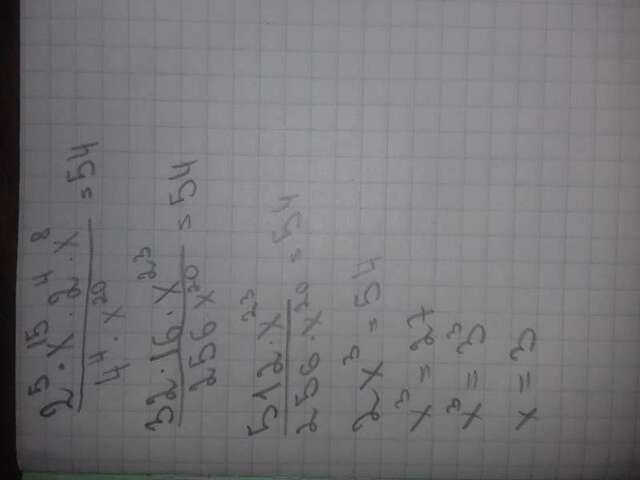 2⁵ · x¹⁵ · 2⁴ · x⁸ / 4⁴ · x²⁰ = 54
32 · 16 · x²³ / 256 x²⁰ = 54
512 · x²³ / 256 · x²⁰ = 54
2x³ = 54
x³ = 27
x³ = 3³
x = 3